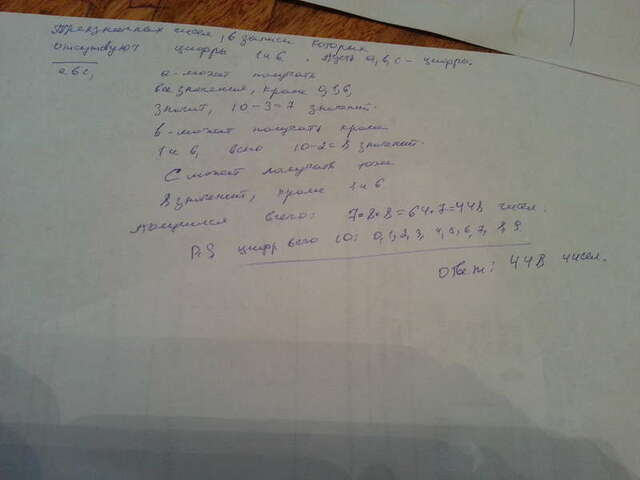 Трехзначных чисел, в записи которых
отсутствуют цифры 1 и 6. Пусть a, b, c - цифры.
abc, a - может получать
все значения, кроме 0,1,6,
значит, 10-3=7 значений.
b - может получать кроме
1 и 6, всего 10-2=8 значений.
C может получать тоже
8 значений, кроме 1 и 6
получился всего: 7*8*8=64*7=448 чисел.
P.S цифр всего 10: 0, 1, 2, 3, 4, 5, 6, 7, 8, 9.
Ответ: 448 чисел.